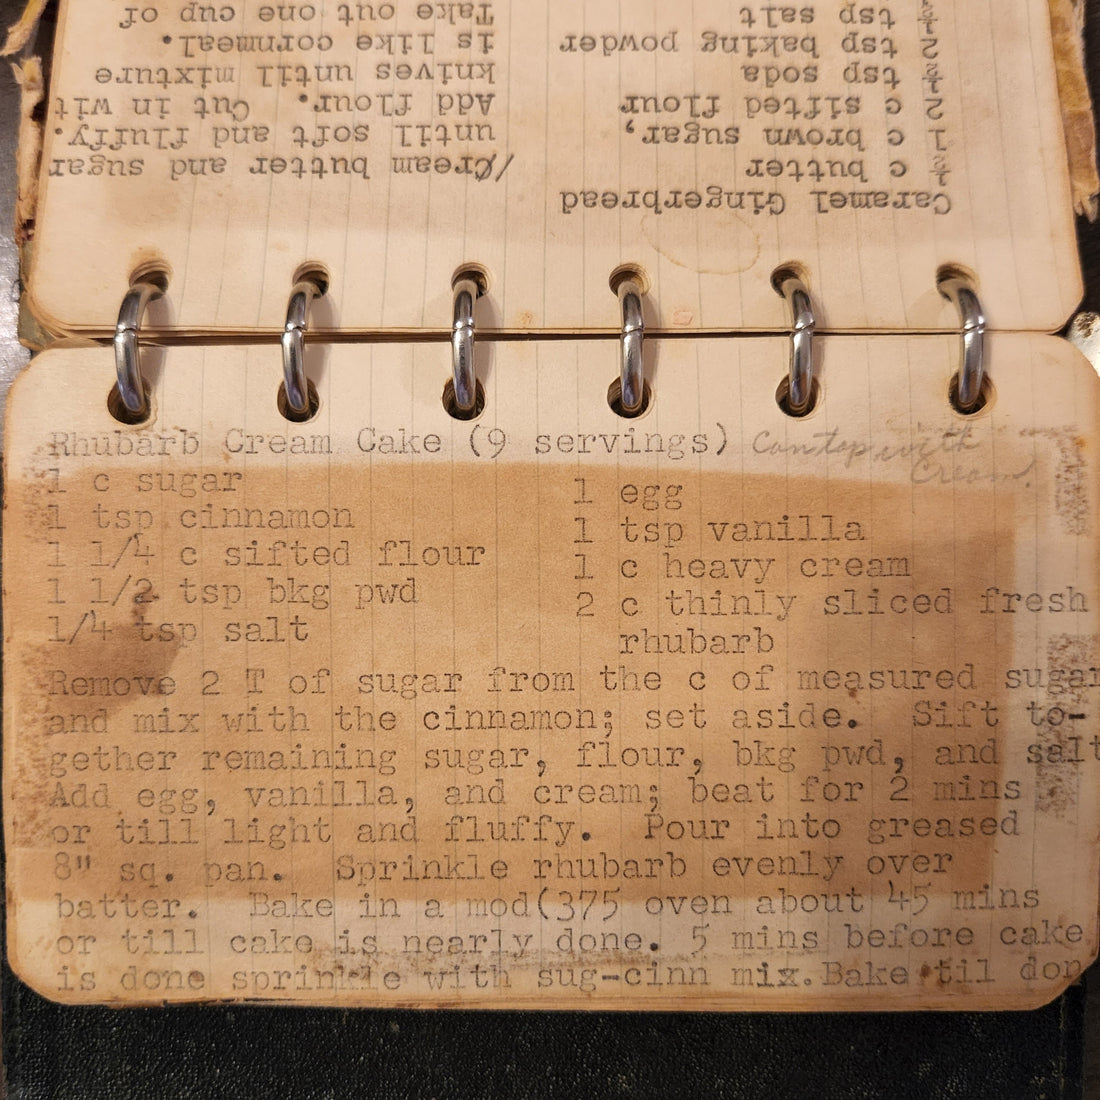 Caramel Gingerbread
½ c butter
1 c brown sugar,
2 c sifted flour
½ tsp soda
2 tsp baking powder
½ tsp salt
/Cream butter and sugar
until soft and fluffy.
Add flour. Cut in wit
knives until mixture
is like cornmeal.
Take out one cup of
Rhubarb Cream Cake (9 servings) Can top with
Cream.
1 c sugar
1 tsp cinnamon
1 1/4 c sifted flour
1 1/2 tsp bkg pwd
1/4 tsp salt
1 egg
1 tsp vanilla
1 c heavy cream
2 c thinly sliced fresh
rhubarb
Remove 2 T of sugar from the c of measured sugar
and mix with the cinnamon; set aside. Sift to-
gether remaining sugar, flour, bkg pwd, and salt
Add egg, vanilla, and cream; beat for 2 mins
or till light and fluffy. Pour into greased
8" sq. pan. Sprinkle rhubarb evenly over
batter. Bake in a mod(375 oven about 45 mins
or till cake is nearly done. 5 mins before cake
is done sprinkle with sug-cinn mix.Bake til don